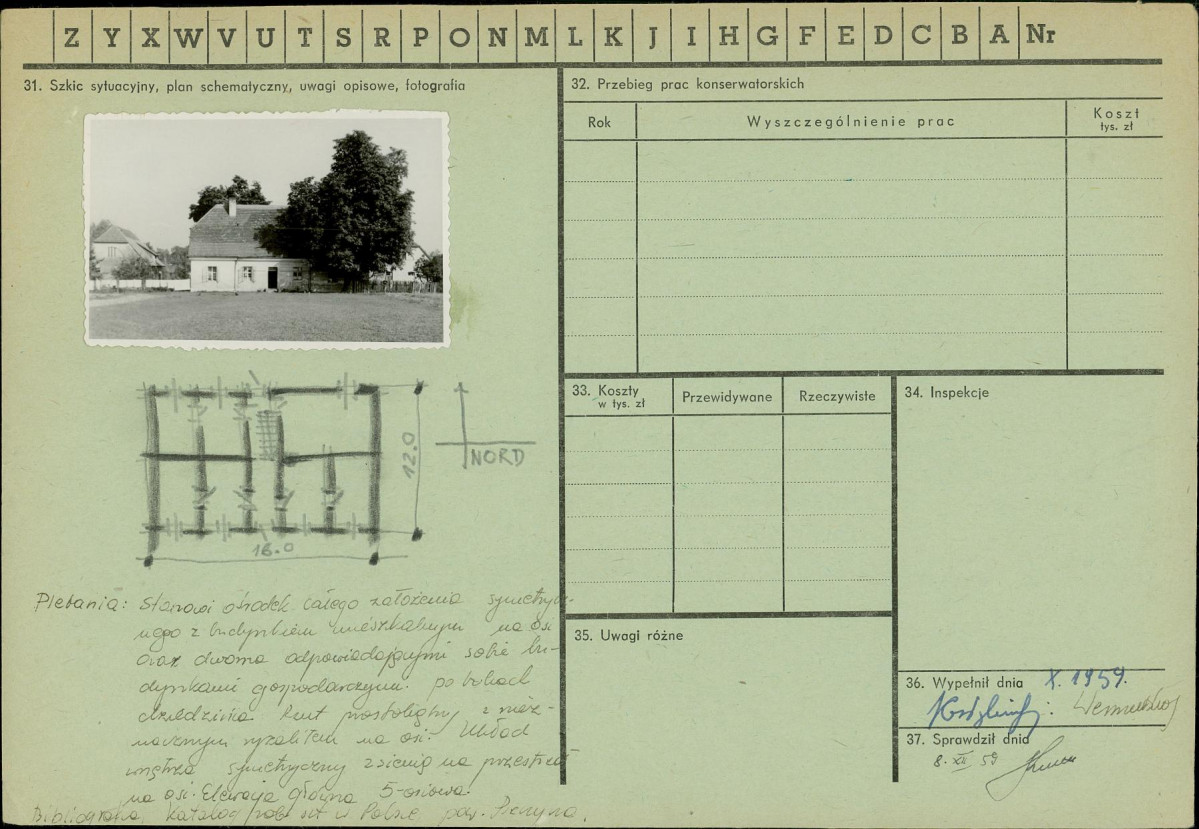 Z Y X W V U T S R P O N M L K J I H G F E D C B A Nr
31. Szkic sytuacyjny, plan schematyczny, uwagi opisowe, fotografia
12.0
NORD
16.0
Plebania: Stanowi ośrodek całego założenia symetrycz-
nego z budynkiem mieszkalnym na osi
oraz dwoma odpowiadającymi sobie bu-
dynkami gospodarczym. po bokach
dziedzińca. Rzut prostokątny z niez-
nacznym ryzalitem na osi. Układ
wnętrza symetryczny z sienią na przestrzał
na osi. Elewacja główna 5-osiowa.
Bibliografia, Katalog zab. szt. w Polsce pow.
32. Przebieg prac konserwatorskich
Rok
Wyszczególnienie prac
Koszt
tys. zł
33. Koszty
w tys. zł
Przewidywane
Rzeczywiste
34. Inspekcje
35. Uwagi różne
36. Wypełnił dnia X. 1959.
37. Sprawdził dnia
8. XII 59